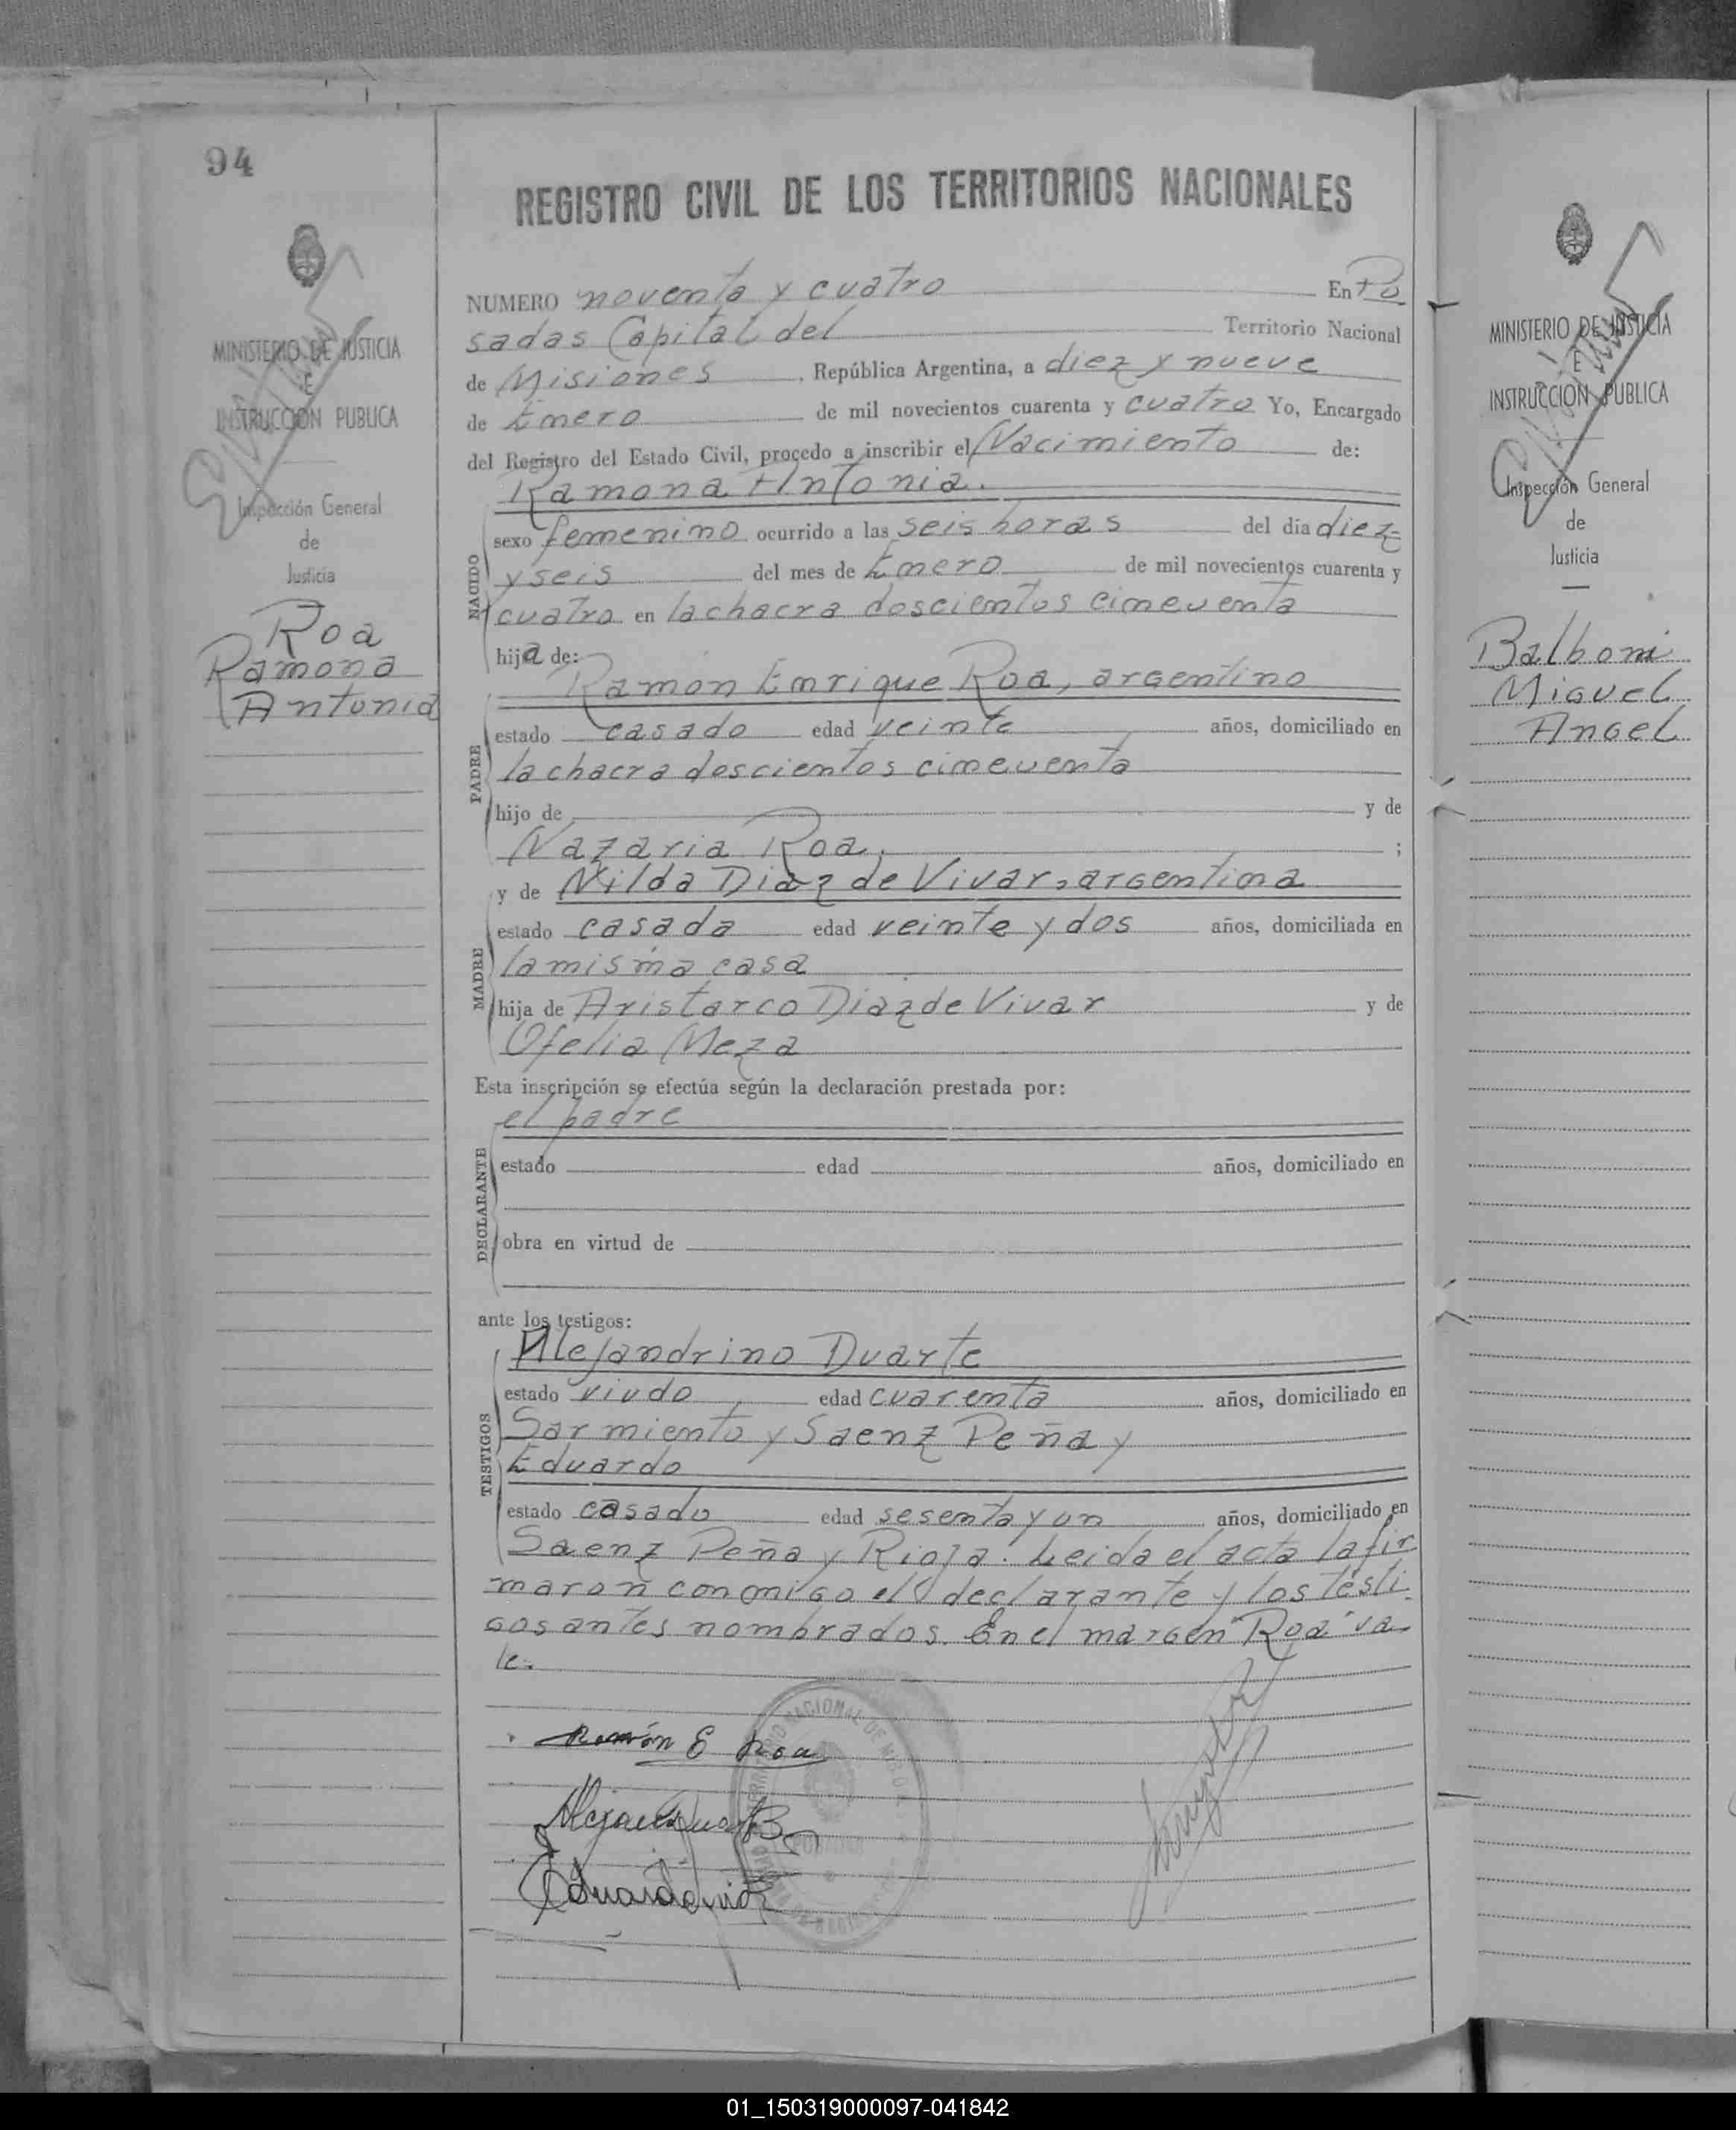 94
MINISTERIO DE JUSTICIA
E
INSTRUCCION PUBLICA
Inspección General
de
Justicia
Roa
Ramona
Antonia
REGISTRO CIVIL DE LOS TERRITORIOS NACIONALES
NUMERO noventa y cuatro En Po
sadas Capital del Territorio Nacional
de Misiones . República Argentina, a diez y nueve
de Enero de mil novecientos cuarenta y cuatro Yo, Encargado
del Registro del Estado Civil, procedo a inscribir el Nacimiento de:
Ramona Antonia.
NACIDO
sexo femenino ocurrido a las seis horas del día diez
y seis del mes de Enero de mil novecientos cuarenta y
cuatro en la chacra doscientos cincuenta
hija de:
Ramón Enrique Roa, argentino
PADRE
estado casado edad veinte años, domiciliado en
la chacra doscientos cincuenta
hijo de y de
Nazaria Roa. ;
y de Nilda Diaz de Vivar, argentina
MADRE
estado casada edad veinte y dos años, domiciliada en
la misma casa
hija de Aristarco Diaz de Vivar y de
Ofelia Meza
Esta inscripción se efectúa según la declaración prestada por:
el padre
DECLARANTE
estado edad años, domiciliado en
obra en virtud de
ante los testigos:
Alejandrino Duarte
TESTIGOS
estado viudo edad cuarenta años, domiciliado en
Sarmiento y Saenz Peña y
Eduardo
estado casado edad sesenta y un años, domiciliado en
Saenz Peña y Rioja. Leida el acta la fir
maron conmigo el declarante y los testi
gos antes nombrados. En el margen "Roa" va
le.
Ramón E Roa
MINISTERIO DE JUSTICIA
E
INSTRUCCION PUBLICA
Inspección General
de
Justicia
Balboni
Miguel
Angel
01_150319000097-041842